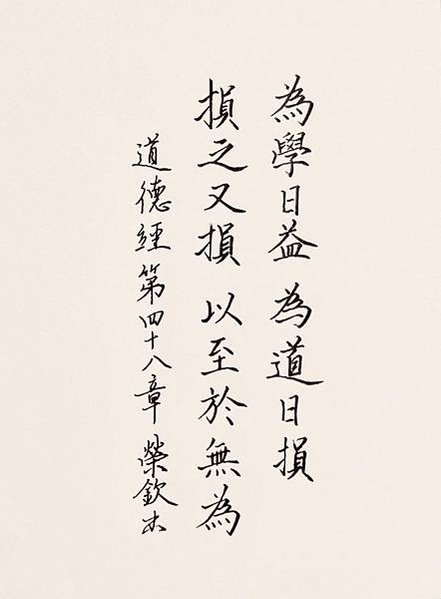 為學日益 為道日損
損之又損 以至於無為
道德經 第四十八章 榮欽